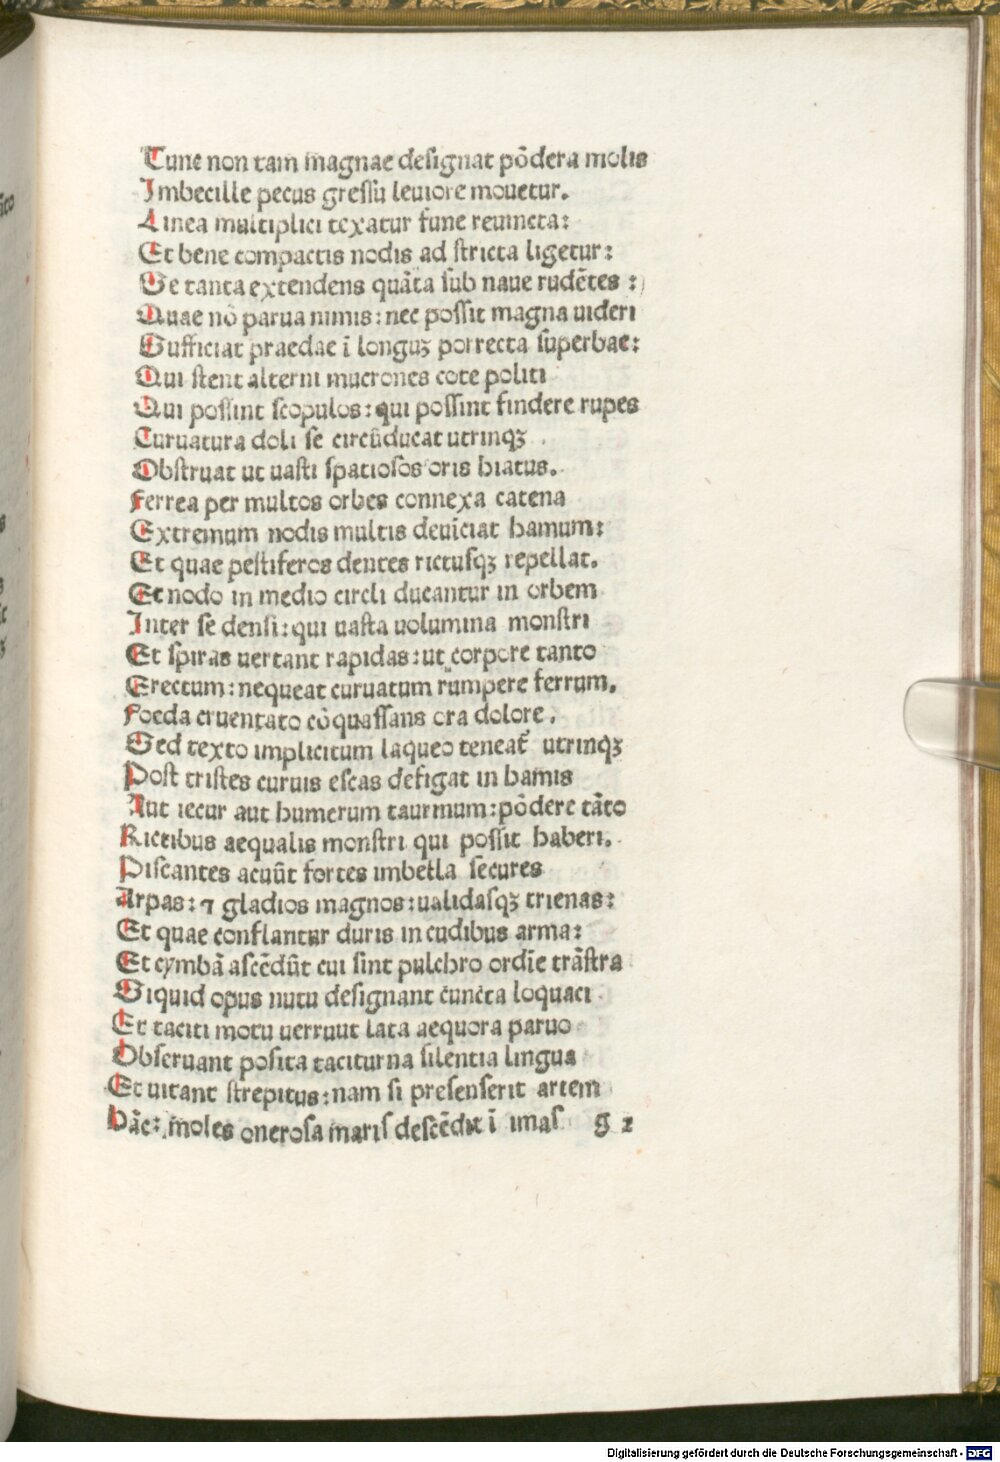 Tunc non tam magnae designat põdera molis
Imbecille pecus gressu leuiore mouetur.
Linea multiplici texatur fune reuincta:
Et bene compactis nodis ad stricta ligetur:
Se tanta extendens quãta sub naue rudẽtes :
Quae nõ parua nimis: nec possit magna uideri
Sufficiat praedae ĩ longuꝫ porrecta superbae:
Qui stent alterni mucrones cote politi
Qui possint scopulos: qui possint findere rupes
Curuatura doli se circũducat utrinqꝫ .
Obstruat ut uasti spatiosos oris hiatus.
Ferrea per multos orbes connexa catena
Extremum nodis multis deuĩciat hamum:
Et quae pestiferos dentes rictusqꝫ repellat.
Et nodo in medio circli ducantur in orbem
Inter se densi: qui uasta uolumina monstri
Et spiras uertant rapidas: ut corpore tanto
Erectum: nequeat curuatum rumpere ferrum.
Foeda cruentato cõquassans ora dolore.
Sed texto implicitum laqueo teneat̃ utrinqꝫ
Post tristes curuis escas defigat in hamis
Aut iecur aut humerum taurinum: põdere tãto
Rictibus aequalis monstri qui possit haberi.
Piscantes acuũt fortes imbella secures
Arpas: ⁊ gladios magnos: ualidasqꝫ trienas:
Et quae conflantur duris incudibus arma:
Et cymbã ascẽdũt cui sint pulchro ordĩe trãstra
Siquid opus nutu designant cuncta loquaci
Et taciti motu uerruut lata aequora paruo
Obseruant posita taciturna silentia lingua
Et uitant strepitus: nam si presenserit artem
Hãc: moles onerosa maris descẽdit ĩ imas g 2
Digitalisierung gefördert durch die Deutsche Forschungsgemeinschaft - DFG